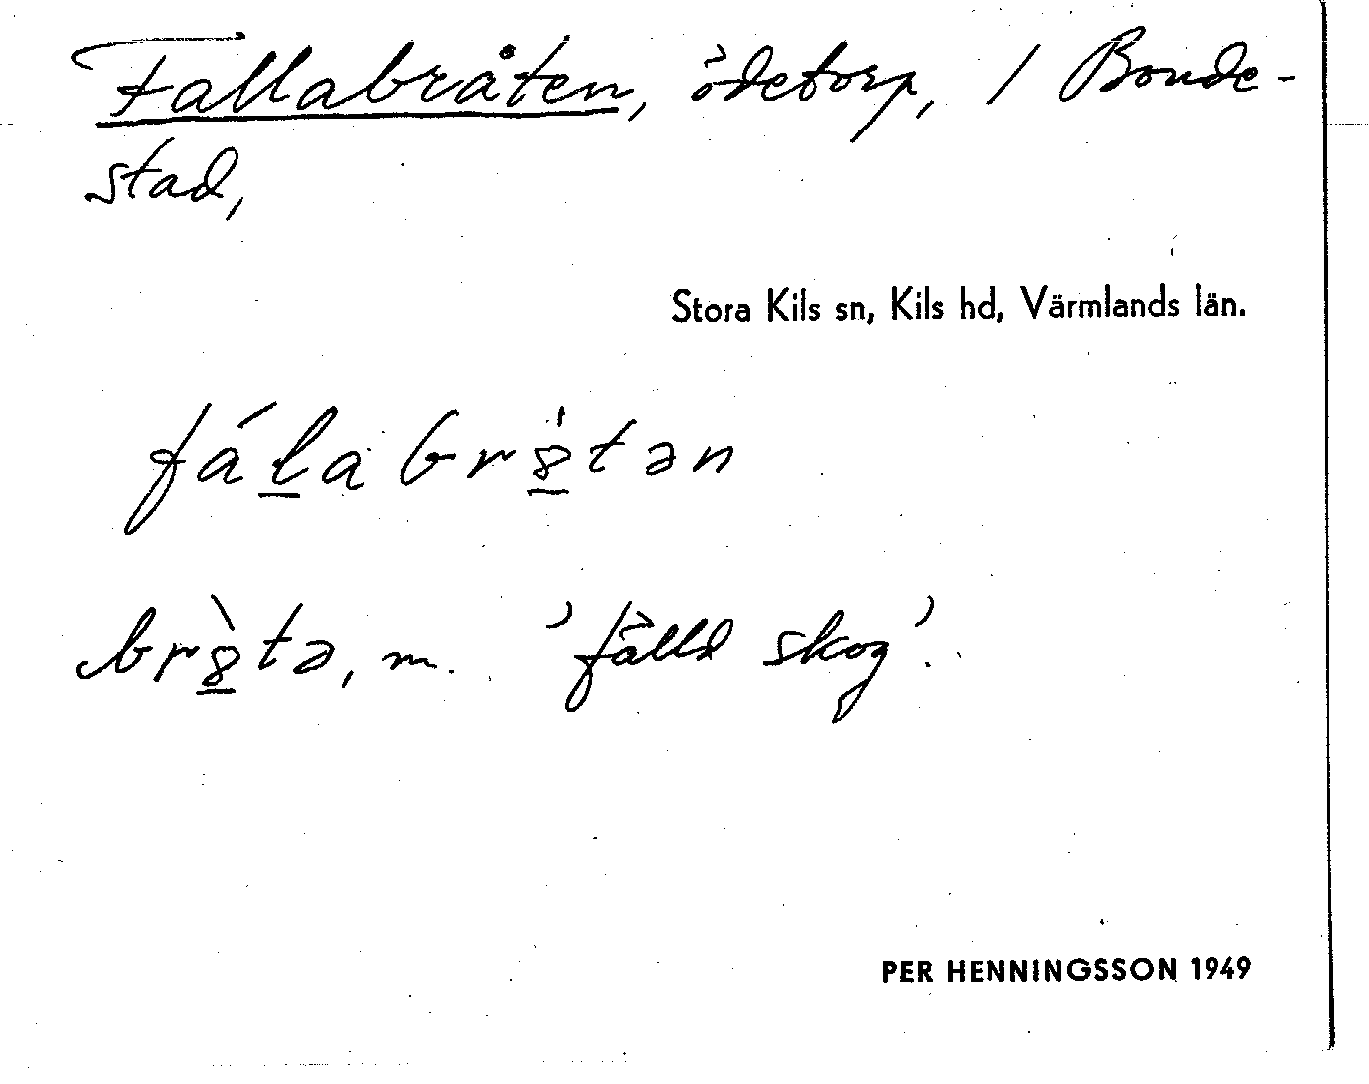 Fallabråten, ödetorp, / Bonde-
stad,
Stora Kils sn, Kils hd, Värmlands län.
fál̲a br8̲́tən
br8̲̀tə, m. 'fälld skog'.
PER HENNINGSSON 1949